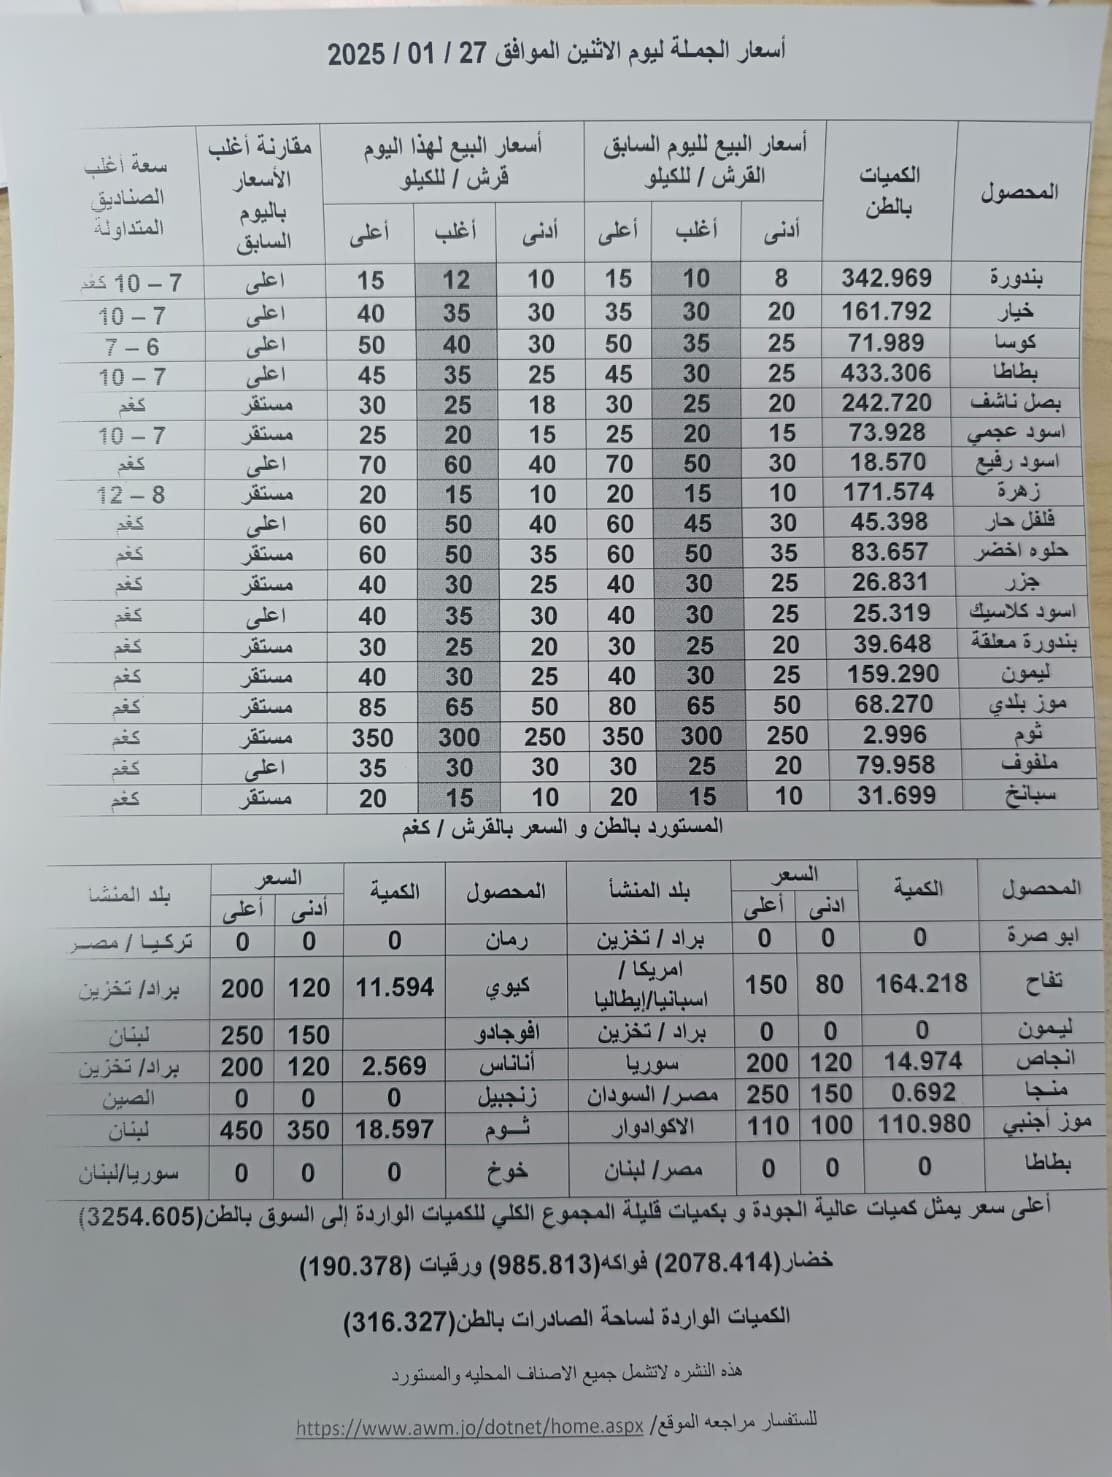 أسعار الجملة ليوم الاثنين الموافق 27 / 01 / 2025
المحصول | الكميات بالطن | أسعار البيع لليوم السابق القرش / للكيلو | أسعار البيع لهذا اليوم قرش / للكيلو | مقارنة أغلب الأسعار باليوم السابق | سعة أغلب الصناديق المتداولة
أدنى | أغلب | أعلى | أدنى | أغلب | أعلى
بندورة | 342.969 | 8 | 10 | 15 | 10 | 12 | 15 | اعلى | 7 – 10 كغم
خيار | 161.792 | 20 | 30 | 35 | 30 | 35 | 40 | اعلى | 7 – 10
كوسا | 71.989 | 25 | 35 | 50 | 30 | 40 | 50 | اعلى | 6 – 7
بطاطا | 433.306 | 25 | 30 | 45 | 25 | 35 | 45 | اعلى | 7 – 10
بصل ناشف | 242.720 | 20 | 25 | 30 | 18 | 25 | 30 | مستقر | كغم
اسود عجمي | 73.928 | 15 | 20 | 25 | 15 | 20 | 25 | مستقر | 7 – 10
اسود رفيع | 18.570 | 30 | 50 | 70 | 40 | 60 | 70 | اعلى | كغم
زهرة | 171.574 | 10 | 15 | 20 | 10 | 15 | 20 | مستقر | 8 – 12
فلفل حار | 45.398 | 30 | 45 | 60 | 40 | 50 | 60 | اعلى | كغم
حلوه اخضر | 83.657 | 35 | 50 | 60 | 35 | 50 | 60 | مستقر | كغم
جزر | 26.831 | 25 | 30 | 40 | 25 | 30 | 40 | مستقر | كغم
اسود كلاسيك | 25.319 | 25 | 30 | 40 | 30 | 35 | 40 | اعلى | كغم
بندورة معلقة | 39.648 | 20 | 25 | 30 | 20 | 25 | 30 | مستقر | كغم
ليمون | 159.290 | 25 | 30 | 40 | 25 | 30 | 40 | مستقر | كغم
موز بلدي | 68.270 | 50 | 65 | 80 | 50 | 65 | 85 | مستقر | كغم
ثوم | 2.996 | 250 | 300 | 350 | 250 | 300 | 350 | مستقر | كغم
ملفوف | 79.958 | 20 | 25 | 30 | 30 | 30 | 35 | اعلى | كغم
سبانخ | 31.699 | 10 | 15 | 20 | 10 | 15 | 20 | مستقر | كغم
المستورد بالطن و السعر بالقرش / كغم
المحصول | الكمية | السعر | بلد المنشأ | المحصول | الكمية | السعر | بلد المنشأ
ادنى | أعلى | أدنى | أعلى
ابو صرة | 0 | 0 | 0 | براد / تخزين | رمان | 0 | 0 | 0 | تركيا / مصر
تفاح | 164.218 | 80 | 150 | امريكا / اسبانيا/إيطاليا | كيوي | 11.594 | 120 | 200 | براد/ تخزين
ليمون | 0 | 0 | 0 | براد / تخزين | افوجادو | 150 | 250 | لبنان
انجاص | 14.974 | 120 | 200 | سوريا | أناناس | 2.569 | 120 | 200 | براد/ تخزين
منجا | 0.692 | 150 | 250 | مصر/ السودان | زنجبيل | 0 | 0 | 0 | الصين
موز أجنبي | 110.980 | 100 | 110 | الاكوادوار | ثوم | 18.597 | 350 | 450 | لبنان
بطاطا | 0 | 0 | 0 | مصر/ لبنان | خوخ | 0 | 0 | 0 | سوريا/لبنان
أعلى سعر يمثل كميات عالية الجودة و بكميات قليلة المجموع الكلي للكميات الواردة إلى السوق بالطن(3254.605)
خضار(2078.414) فواكه(985.813) ورقيات (190.378)
الكميات الواردة لساحة الصادرات بالطن(316.327)
هذه النشره لاتشمل جميع الاصناف المحليه والمستورد
للستفسار مراجعه الموقع/ https://www.awm.jo/dotnet/home.aspx